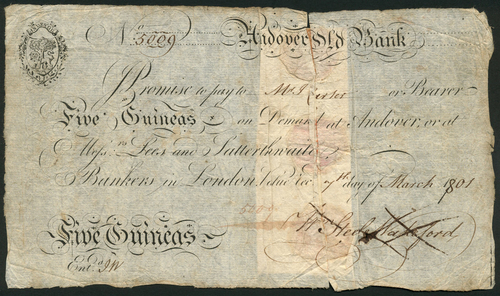 No. 5009 Andover Old Bank
Promise to pay to Mr J or Bearer
Five Guineas on Demand at Andover, or at
Messrs. Lees and Satterthwaite
Bankers in London Value recd. 7th day of March 1801
Five Guineas
Entd. JW